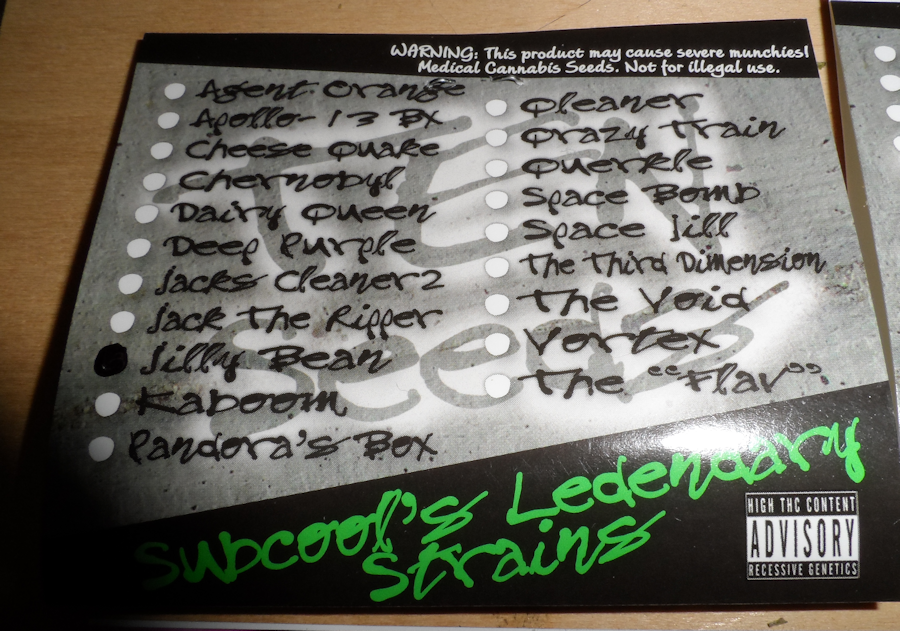 WARNING: This product may cause severe munchies!
Medical Cannabis Seeds. Not for illegal use.
Agent Orange
Apollo-13 Bx
Cheese Quake
Chernobyl
Dairy Queen
Deep Purple
Jacks Cleaner2
Jack The Ripper
Jilly Bean
Kaboom
Pandora's Box
Qleaner
Qrazy Train
Querkle
Space Bomb
Space Jill
The Third Dimension
The Void
Vortex
The "Flav"
TGA
Seeds
Subcool's Ledendary
Strains
HIGH THC CONTENT
ADVISORY
RECESSIVE GENETICS